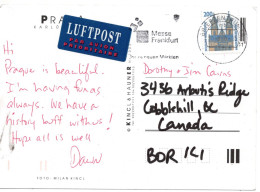 PRA
KARL
LUFTPOST
PAR AVION
PRIORITAIRE
Messe
Frankfurt
200
Hi
Prague is beautiful.
I'm having fun as
always. We have a
history buff with us!
Hope all is well
Dave
FOTO: MILAN KINCL
© KINCL & HAUNER
Dorothy + Jim Cairns
3456 Arbutus Ridge
Cobblehill, BC
Canada
BOR 1C1